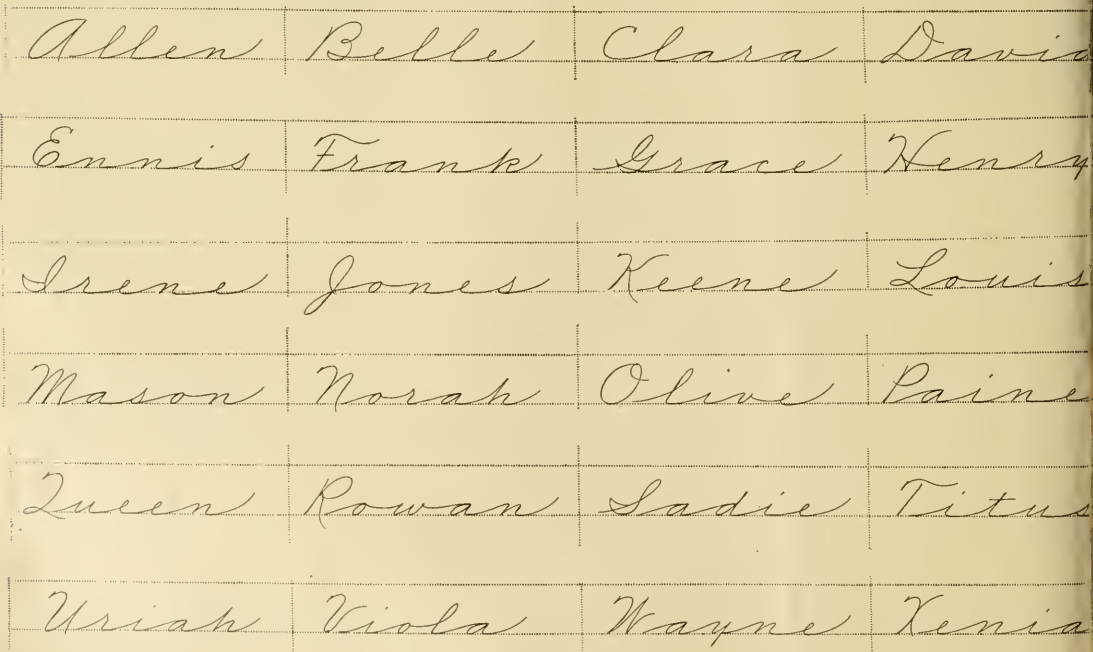 Allen Belle Clara David
Ennis Frank Grace Henry
Irene Jones Keene Louis
Mason Norah Olive Paine
Queen Rowan Sadie Titus
Uriah Viola Wayne Xenia